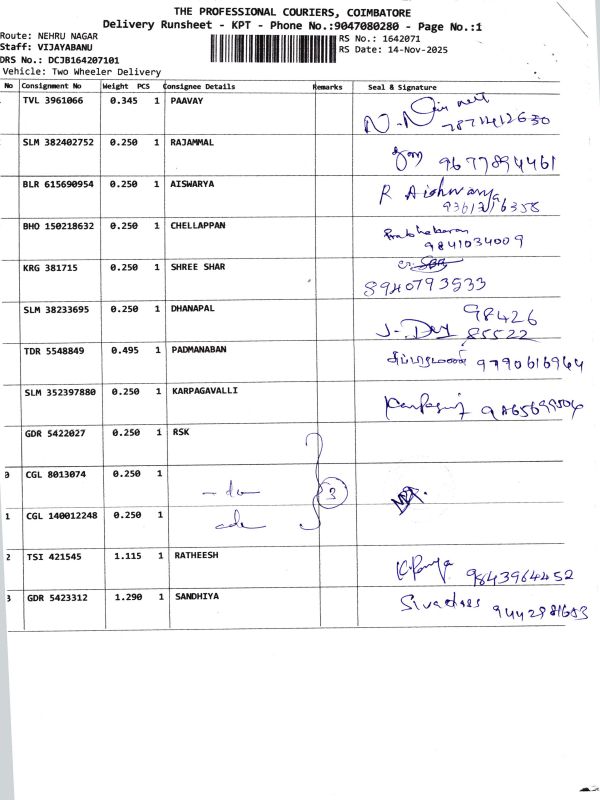 THE PROFESSIONAL COURIERS, COIMBATORE
Delivery Runsheet - KPT - Phone No.:9047080280 - Page No.:1
Route: NEHRU NAGAR
Staff: VIJAYABANU
DRS No.: DCJB164207101
Vehicle: Two Wheeler Delivery
RS No.: 1642071
RS Date: 14-Nov-2025
No Consignment No Weight PCS Consignee Details Remarks Seal & Signature
TVL 3961066 0.345 1 PAAVAY
SLM 382402752 0.250 1 RAJAMMAL 9677894461
BLR 615690954 0.250 1 AISWARYA R Aishwarya
BHO 150218632 0.250 1 CHELLAPPAN Prabhakaran
9841034009
KRG 381715 0.250 1 SHREE SHAR
8940793533
SLM 38233695 0.250 1 DHANAPAL 98426
85522
TDR 5548849 0.495 1 PADMANABAN 9790616944
SLM 352397880 0.250 1 KARPAGAVALLI
GDR 5422027 0.250 1 RSK
0 CGL 8013074 0.250 1 - do - 3
1 CGL 140012248 0.250 1
2 TSI 421545 1.115 1 RATHEESH 9843964452
3 GDR 5423312 1.290 1 SANDHIYA Sivadass